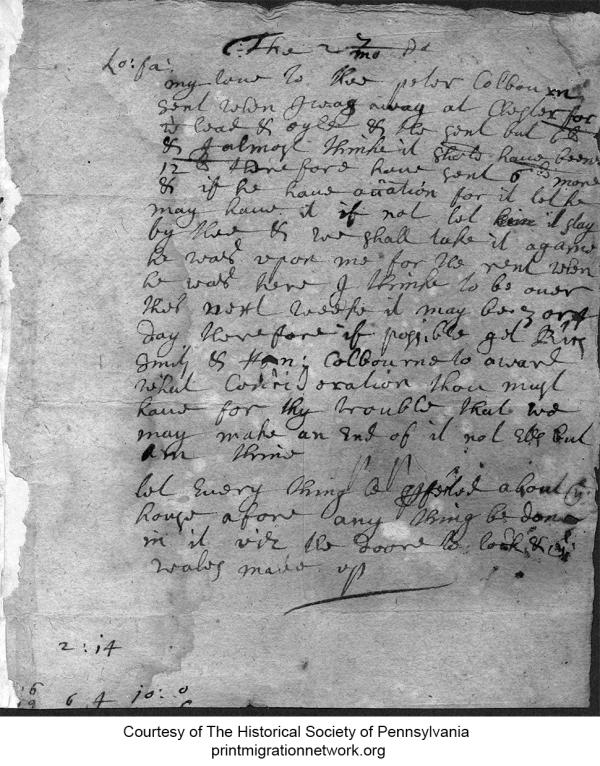 The 2
mo
Lo: fa:
my love to thee peter Colbourn
sent when I was away at Chester for
lead & oyle & He sent but
& I almost thinke it should have beene
12 therefore have sent 6 more
& if he have for it let he
may have it if not let it stay
by thee & we shall take it againe
he was upon me for the rent when
he was here I thinke to be over
this next weeke it may be 3 or 4
day therefore if possible get Rich
Smith & Hen: Colbourne to award
what Consideration thou must
have for thy trouble that we
may make an End of it not Els but
am thine
let Every thing be about
house afore any thing be done
in it viz the doore to &
wales made up
2 : 14
6
6 4 10: 0
Courtesy of The Historical Society of Pennsylvania
printmigrationnetwork.org